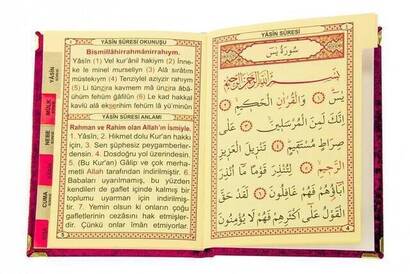 YÂSÎN SÛRESİ OKUNUŞU
Bismillâhirrahmânirrahıym.
Yâsîn (1) Vel kur'ânil hakiym (2) İnne-
ke le minel murseliyn (3) Alâ sırâtım
müstekıym (4) Tenziylel aziyzir rahıym
(5) Li tünzira kavmem mâ ünzira âbâ-
ühüm fehüm ğâfilûn (6) Le kad hakkal
kavlü alâ ekserihim fehüm lâ yü'minûn
YÂSÎN SÛRESİ ANLAMI
Rahman ve Rahim olan Allah'ın İsmiyle.
1. Yâsîn. 2. Hikmet dolu Kur'an hakkı
için, 3. Sen şüphesiz peygamberler-
densin. 4. Dosdoğru yol üzerindesin.
5. (Bu Kur'an) Gâlip ve çok merha-
metli Allah tarafından indirilmiştir. 6.
Babaları uyarılmamış, bu yüzden
kendileri de gaflet içinde kalmış bir
toplumu uyarman için indirilmiştir.
7. Yemin olsun ki onların çoğu
gafletlerinin cezâsını hak etmişler-
dir. Çünkü onlar îman etmiyorlar.
YÂSÎN
MÜLK
NEBE
CUMA
YÂSÎN SÛRESİ
سُورَةُ يٰسٓ
بِسْمِ اللّٰهِ الرَّحْمٰنِ الرَّحِيمِ
يٰسٓ ﴿١﴾ وَالْقُرْاٰنِ الْحَكِيمِ ﴿٢﴾
اِنَّكَ لَمِنَ الْمُرْسَلِينَ ﴿٣﴾ عَلٰى
صِرَاطٍ مُسْتَقِيمٍ ﴿٤﴾ تَنْزِيلَ الْعَزِيزِ
الرَّحِيمِ ﴿٥﴾ لِتُنْذِرَ قَوْمًا مَٓا اُنْذِرَ
اٰبَٓاؤُهُمْ فَهُمْ غَافِلُونَ ﴿٦﴾ لَقَدْ حَقَّ
الْقَوْلُ عَلٰٓى اَكْثَرِهِمْ فَهُمْ لَا يُؤْمِنُونَ